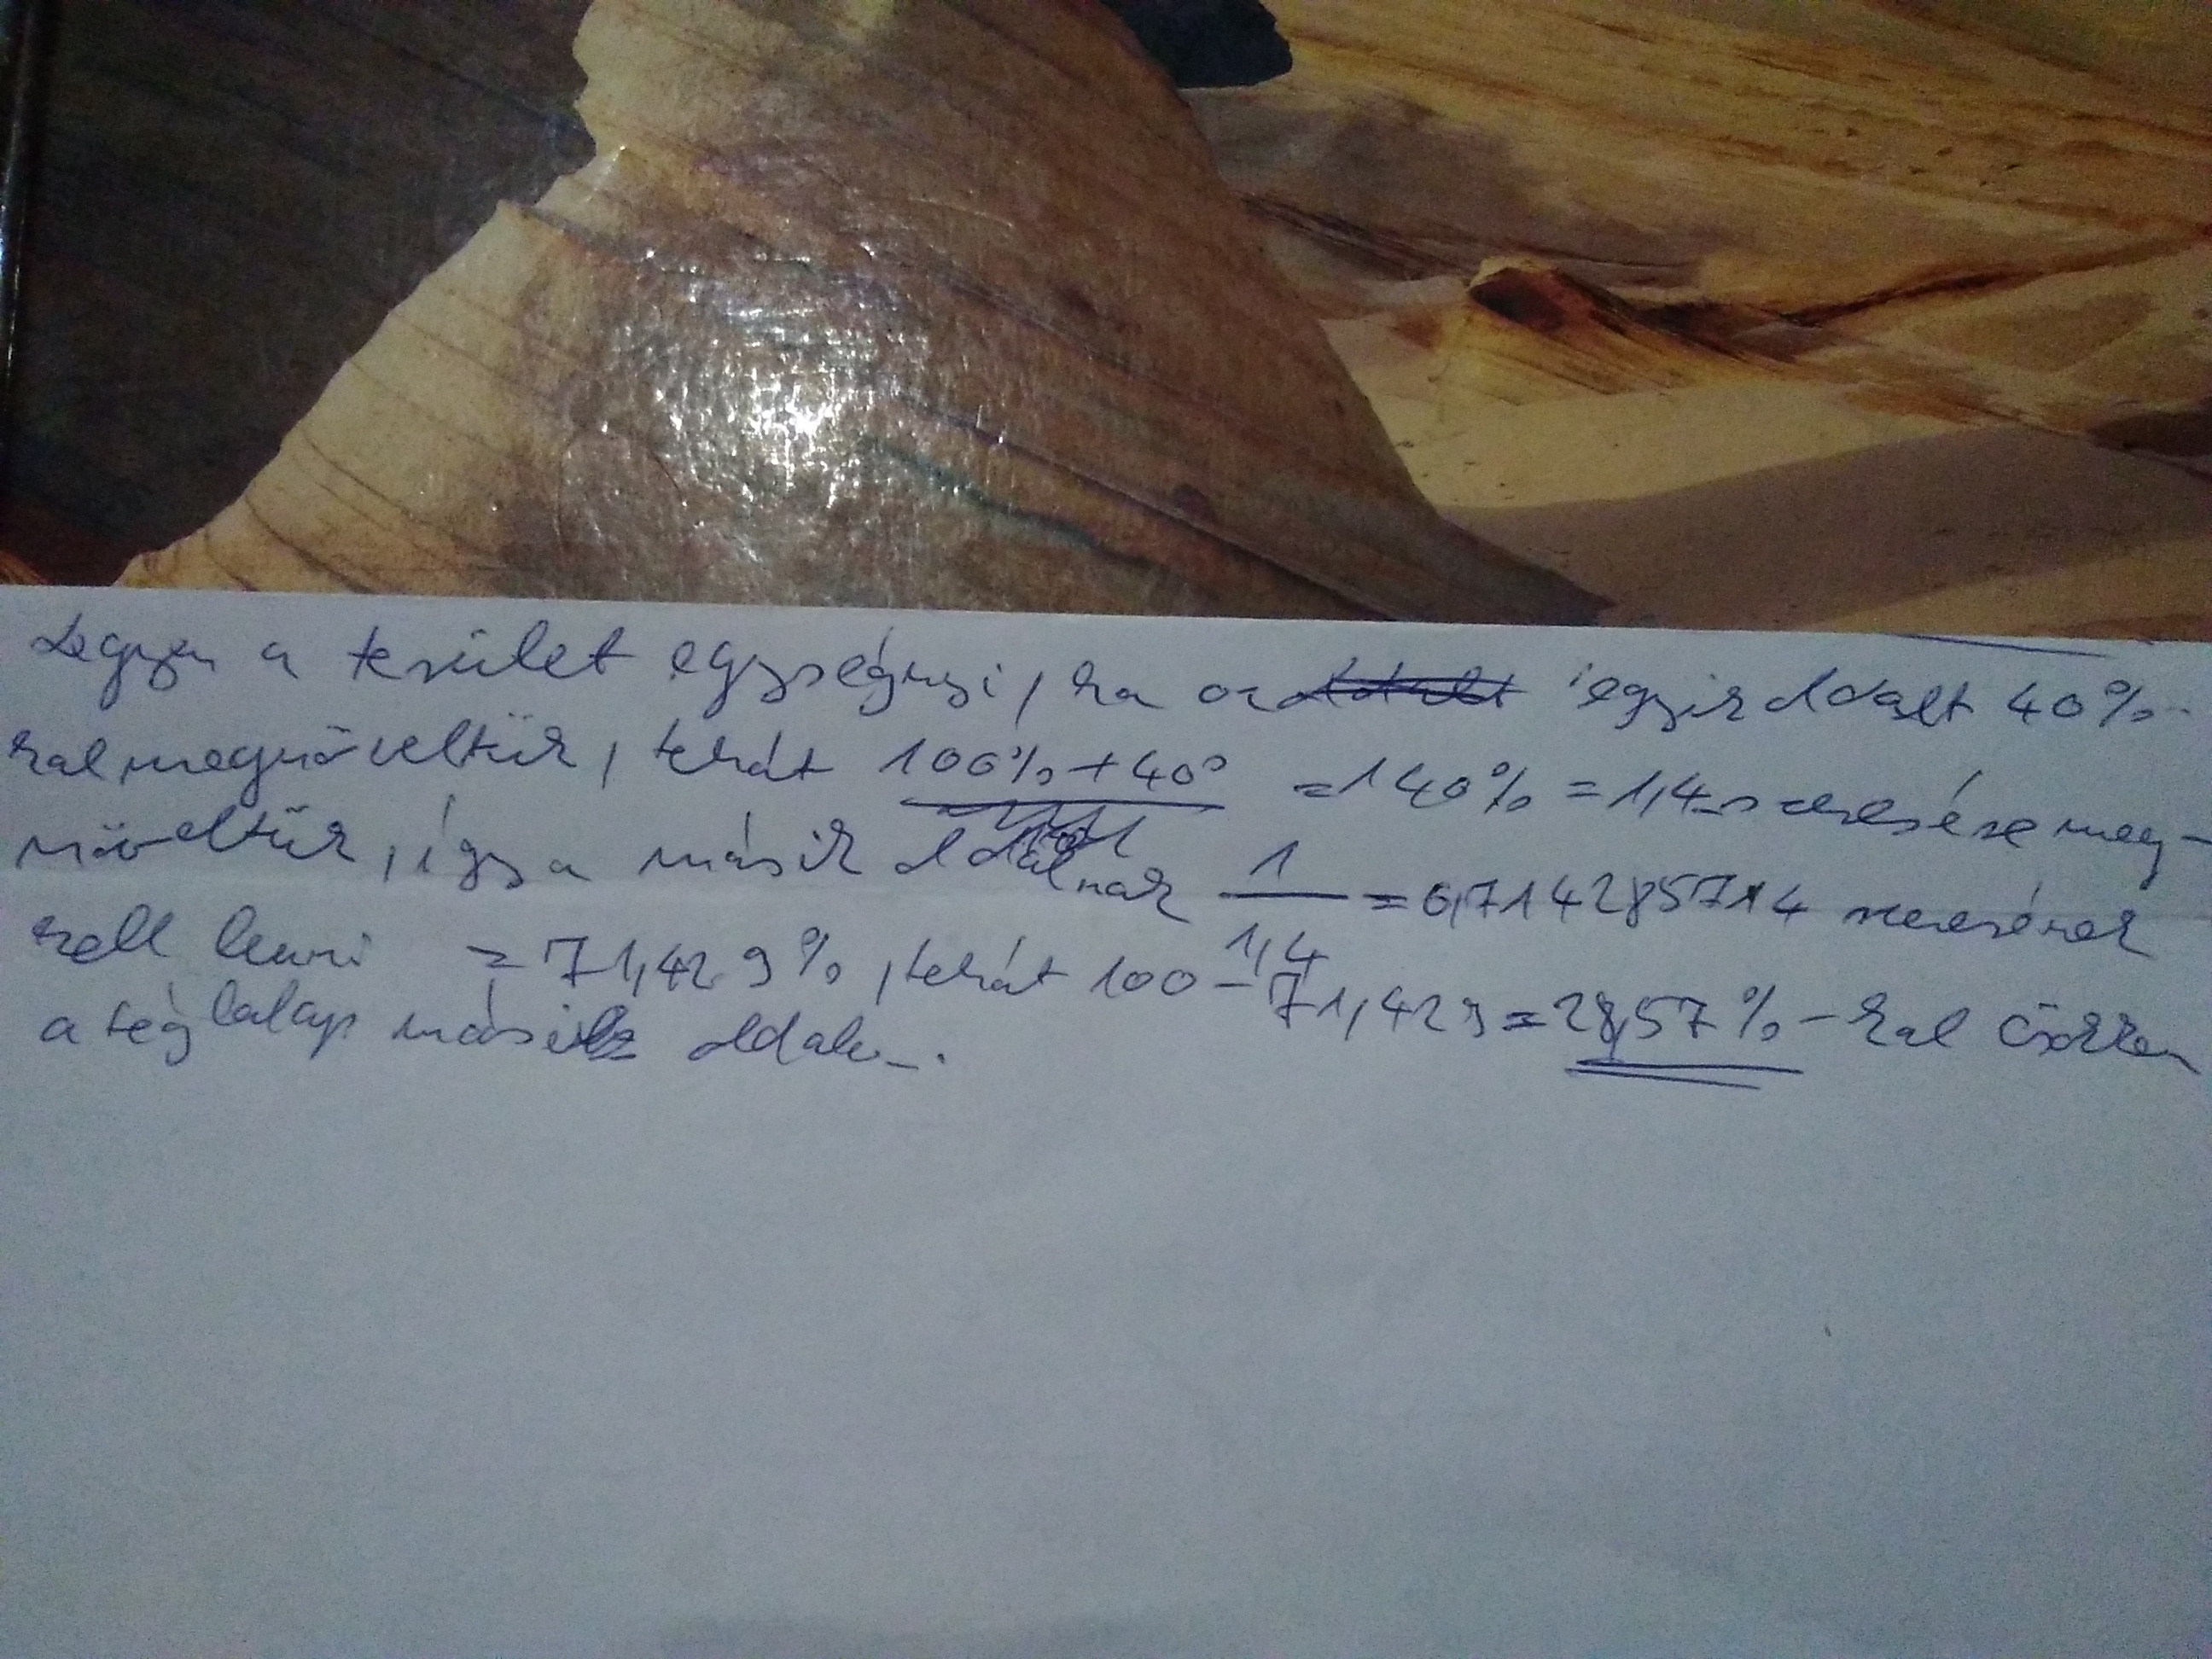 Legyen a terület egységnyi, ha az egyik oldalt 40%-
kal megnöveltük, tehát 100%+40% =140% =1,4-szeresére meg-
növeltük, így a másik oldalnak 1/1,4 = 0,714285714 szeresének
kell lenni = 71,429%, tehát 100-71,429=28,57%-kal csökken
a téglalap másik oldala.